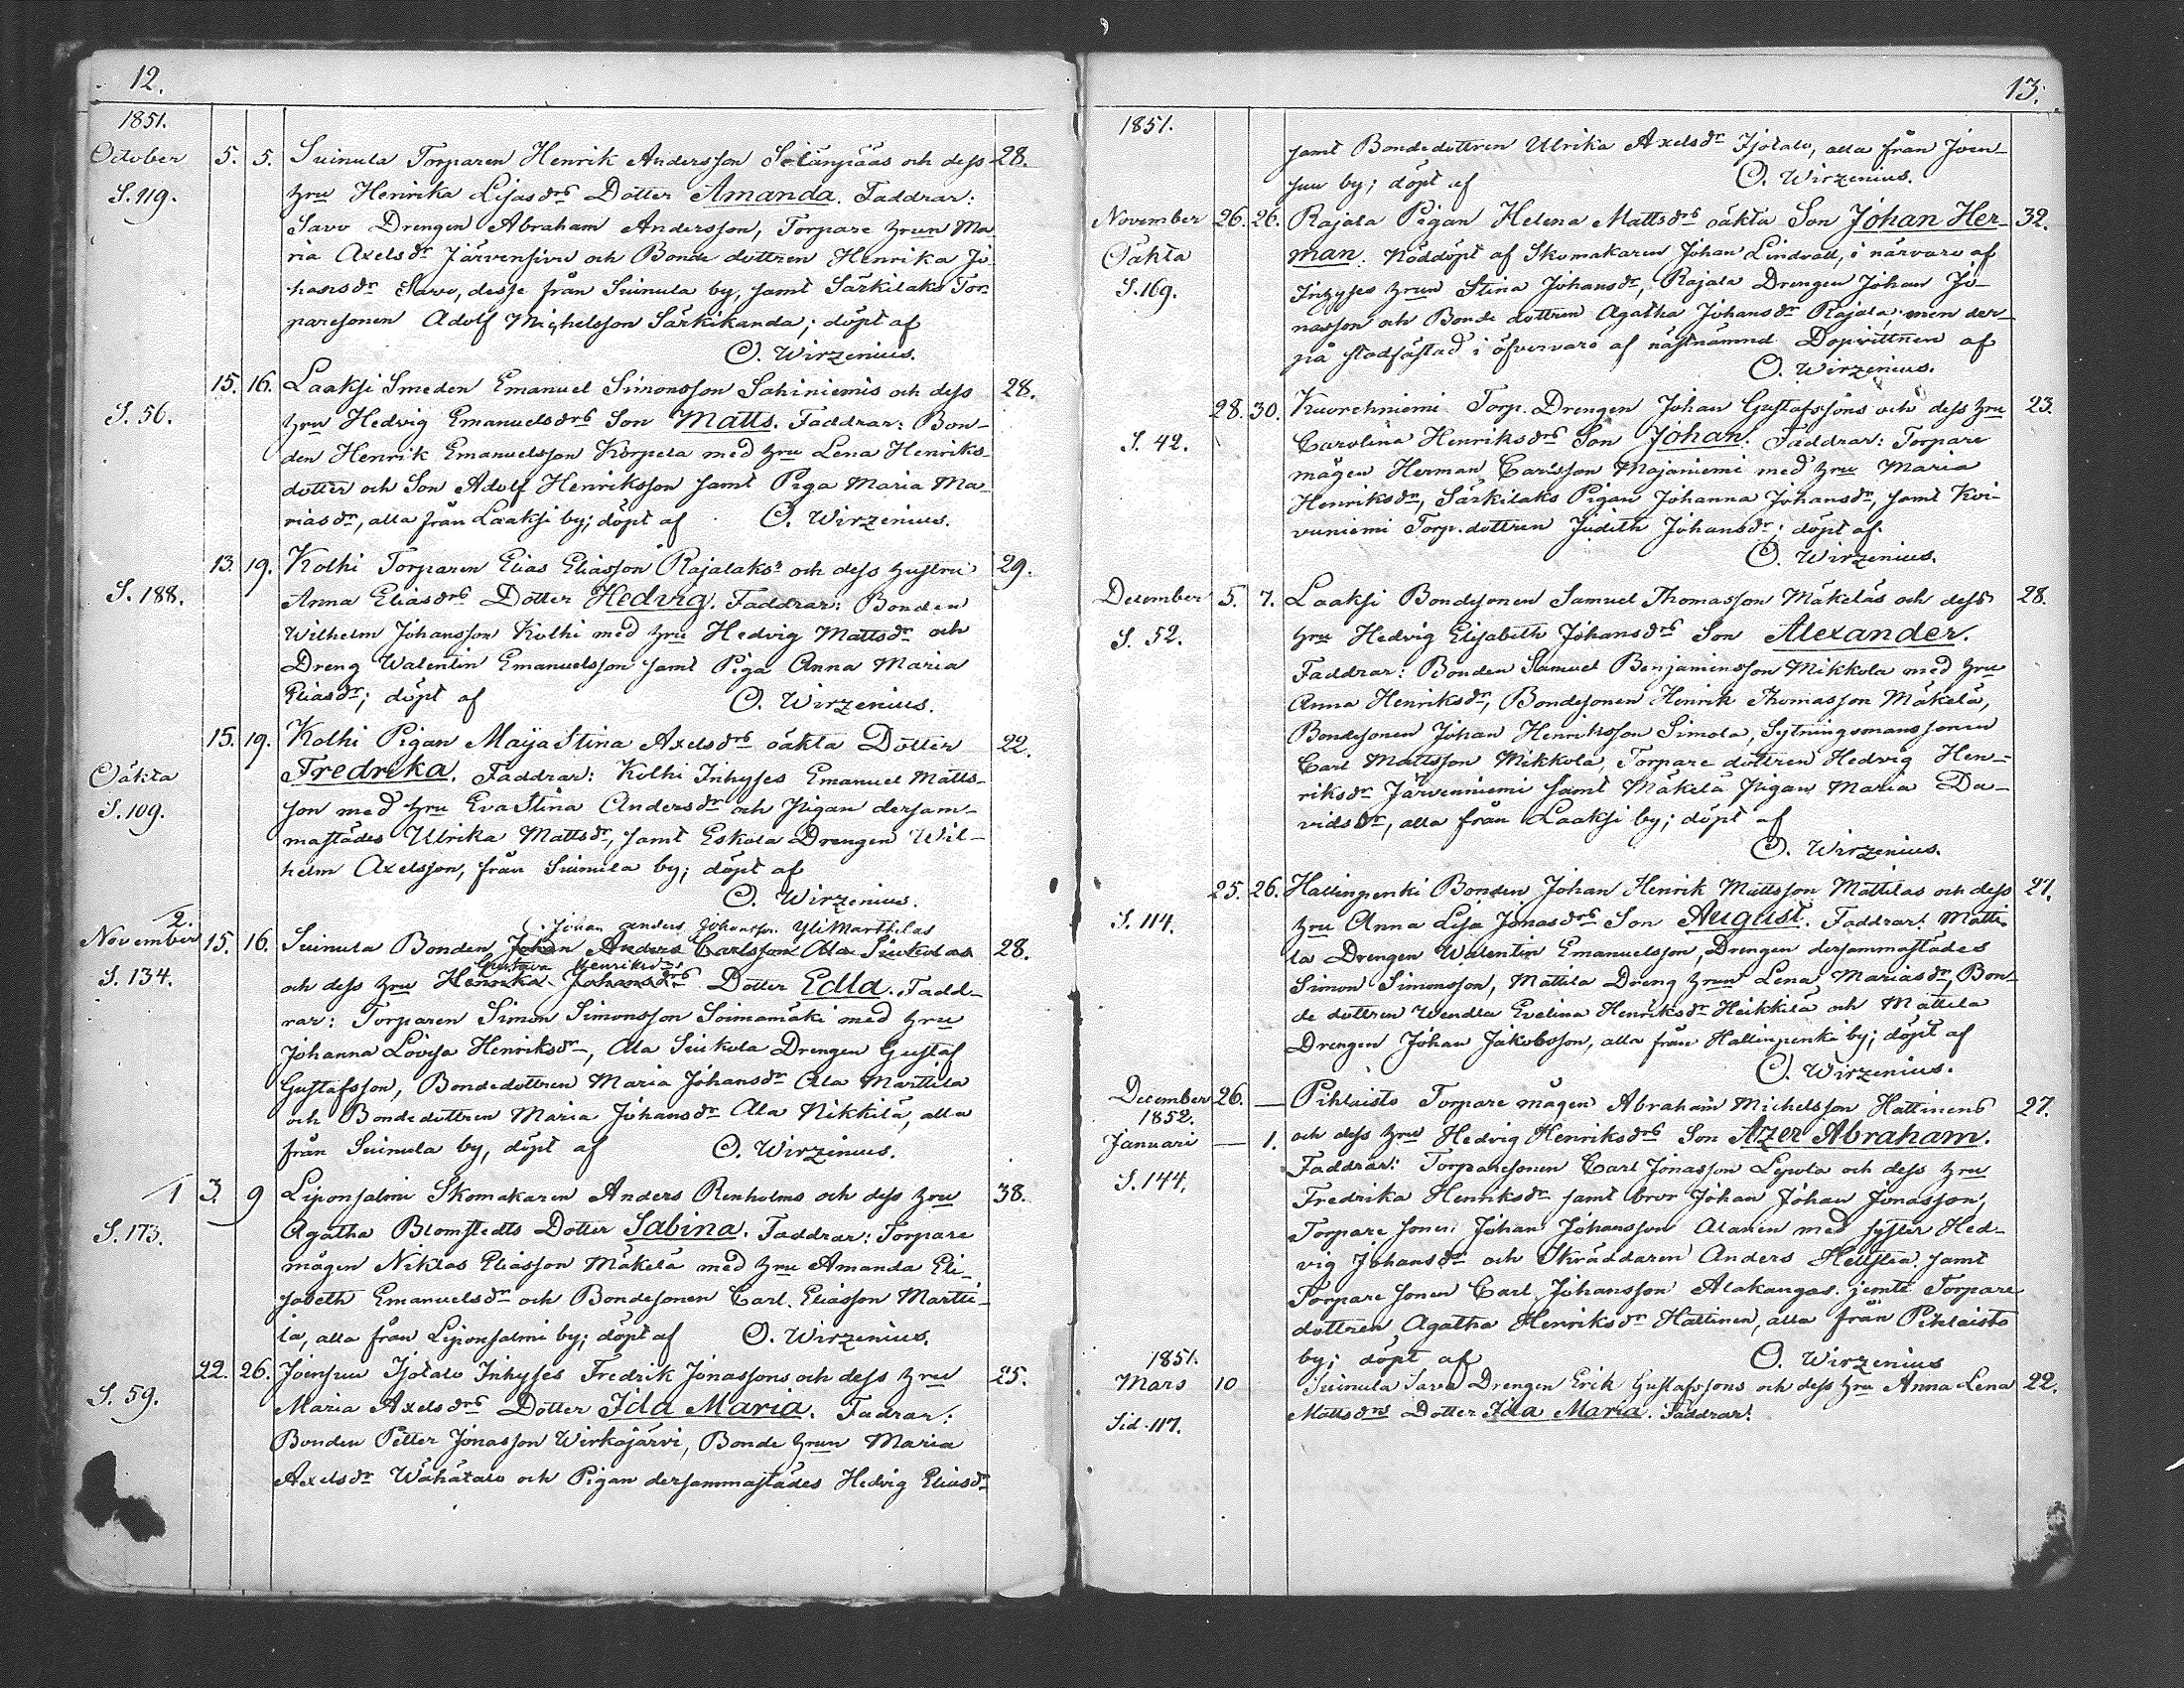 12.
1851.
October 5. 5. Suinula Torparen Henrik Andersson Setänpääs och dess 28.
S. 119. hru Henrika Lisasdrs Dotter Amanda. Faddrar:
Savo Drengen Abraham Andersson, Torpare hrun Ma-
ria Axelsdr Järvensivu och Bonde dottren Henrika Jo-
hansdr Savo, desse från Suinula by, samt Särkilaks Tor-
paresonen Adolf Michelsson Särkikanda; döpt af
O. Wirzenius.
15. 16. Laaksi Smeden Emanuel Simonsson Sahiniemis och dess 28.
S. 56. hru Hedvig Emanuelsdrs Son Matts. Faddrar: Bon-
den Henrik Emanuelsson Korpela med hru Lena Henriks-
dotter och Son Adolf Henriksson samt Piga Maria Ma-
riasdr, alla från Laaksi by; döpt af O. Wirzenius.
13. 19. Kolhi Torparen Elias Eliasson Rajalaks och dess hustru 29.
S. 188. Anna Eliasdrs Dotter Hedvig. Faddrar: Bonden
Wilhelm Johansson Kolhi med hru Hedvig Mattsdr och
Dreng Walentin Emanuelsson samt Piga Anna Maria
Eliasdr; döpt af O. Wirzenius.
15. 19. Kolhi Pigan Maija Stina Axelsdrs oäkta Dotter 22.
Oäkta Fredrika. Faddrar: Kolhi Inhyses Emanuel Matts-
S. 109. son med hru Eva Stina Andersdr och Pigan dersam-
mastädes Ulrika Mattsdr, samt Eskola Drengen Wil-
helm Axelsson, från Suinula by; döpt af
O. Wirzenius.
2. Johan Anders Johansson Yli Marttilas
November 15. 16. Suinula Bonden Johan Anders Carlsson Ala Siukolas 28.
Gustava Henriksdrs
S. 134. och dess hru Henrika Johansdrs Dotter Edla. Fadd-
rar: Torparen Simon Simonsson Soimamäki med hru
Johanna Lovisa Henriksdr, Ala Siukola Drengen Gustaf
Gustafsson, Bondedottren Maria Johansdr Ala Marttila
och Bondedottren Maria Johansdr Ala Nikkilä, alla
från Suinula by, döpt af O. Wirzenius.
1 3. 9 Liponsalmi Skomakaren Anders Renholms och dess hru 38.
S. 173. Agatha Blomstedts Dotter Sabina. Faddrar: Torpare
mågen Niklas Eliasson Mäkelä med hru Amanda Eli-
sabeth Emanuelsdr och Bondesonen Carl Eliasson Martti-
la, alla från Liponsalmi by; döpt af O. Wirzenius.
22. 26. Joensuu Isotalo Inhyses Fredrik Jonassons och dess hru 25.
S. 59. Maria Axelsdrs Dotter Ida Maria. Fadrar:
Bonden Petter Jonasson Wirkajärvi, Bonde hrun Maria
Axelsdr Wähätalo och Pigan dersammastädes Hedvig Eliasdr
13.
1851.
samt Bondedottren Ulrika Axelsdr Isotalo, alla från Joen-
suu by; döpt af O. Wirzenius.
November 26. 26. Rajala Pigan Helena Mattsdrs oäkta Son Johan Her- 32.
Oäkta man. Nöddöpt af Skomakaren Johan Lindvall, i närvaro af
S. 169. Inhyses hrun Stina Johansdr, Rajala Drengen Johan Jo-
nasson och Bonde dottren Agatha Johansdr Rajala; men der-
på stadfästad i öfvervaro af nästnämnd Dopvittnen af
O. Wirzenius.
28. 30. Kuorehniemi Torp. Drengen Johan Gustafssons och dess hru 23.
S. 42. Carolina Henriksdrs Son Johan. Faddrar: Torpare
mågen Herman Carlsson Majaniemi med hru Maria
Henriksdr, Särkilaks Pigan Johanna Johansdr, samt Koi-
vuniemi Torp. dottren Judith Johansdr; döpt af.
O. Wirzenius.
December 5. 7. Laaksi Bondesonen Samuel Thomasson Mäkeläs och dess 28.
S. 52. hru Hedvig Elisabeth Johansdrs Son Alexander.
Faddrar: Bonden Samuel Benjaminsson Mikkola med hru
Anna Henriksdr, Bondesonen Henrik Thomasson Mäkelä,
Bondesonen Johan Henriksson Simola, Sytningsmanssonen
Carl Mattsson Mikkola, Torpare dottren Hedvig Hen-
riksdr Järvenniemi samt Mäkelä Pigan Maria Da-
vidsdr, alla från Laaksi by; döpt af
O. Wirzenius.
25. 26. Hallinpenki Bonden Johan Henrik Mattsson Mattilas och dess 27.
S. 114. hru Anna Lisa Jonasdrs Son August. Faddrar: Matti-
la Drengen Walentin Emanuelsson, Drengen dersammastädes
Simon Simonsson, Mattila Dreng hrun Lena Mariasdr, Bon-
de dottren Wendla Evelina Henriksdr Heikkilä och Mattila
Drengen Johan Jakobsson, alla från Hallinpenki by; döpt af
O. Wirzenius.
December 26. — Pihlaisto Torpare mågen Abraham Michelsson Hattinens 27.
1852.
Januari — 1. och dess hru Hedvig Henriksdrs Son Azer Abraham.
S. 144. Faddrar: Torparesonen Carl Jonasson Lepola och dess hru
Fredrika Henriksdr samt bror Johan Johan Jonasson,
Torpare sonen Johan Johansson Alanen med syster Hed-
vig Johansdr och Skräddaren Anders Hellsten samt
Torpare sonen Carl Johansson Alakangas jemte Torpare
dottren Agatha Henriksdr Hattinen, alla från Pihlaisto
by; döpt af O. Wirzenius
1851.
Mars 10 Suinula Savo Drengen Erik Gustafssons och dess hru Anna Lena 22.
Sid. 117. Mattsdrs Dotter Ida Maria. Faddrar: